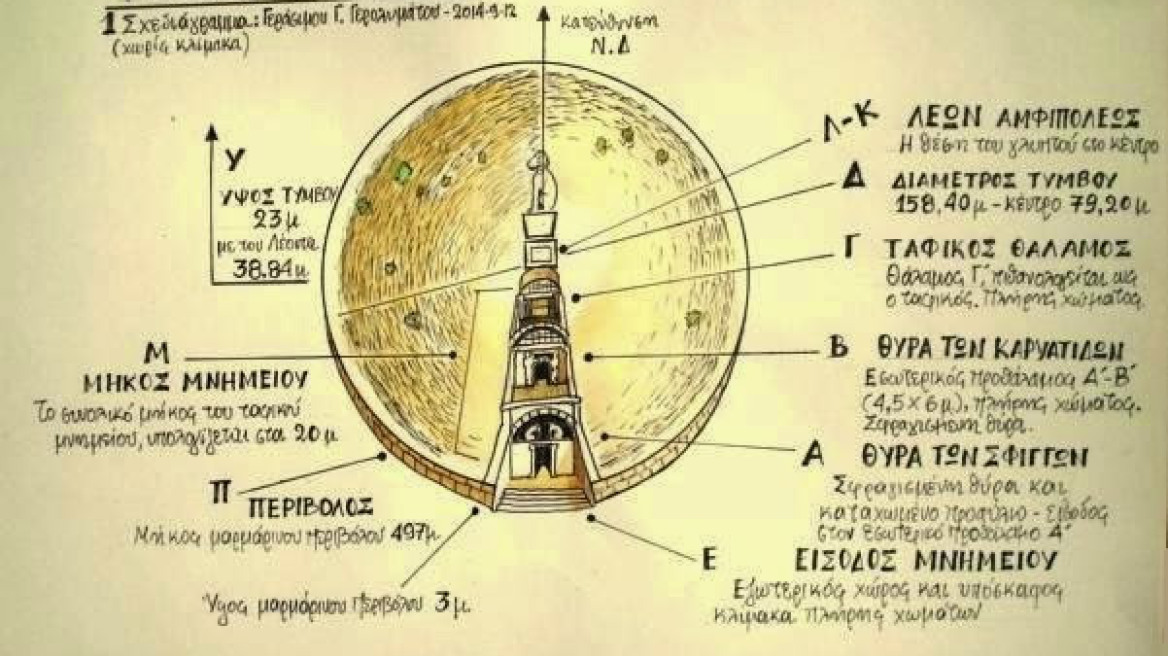 1 Σχεδιάγραμμα: Γεράσιμου Γ. Γερολυμάτου - 2014-9-12
(χωρίς κλίμακα)
κατεύθυνση
Ν.Δ
Υ
ΥΨΟΣ ΤΥΜΒΟΥ
23μ
με τον Λέοντα
38.84μ.
Λ-Κ ΛΕΩΝ ΑΜΦΙΠΟΛΕΩΣ
Η θέση του γλυπτού στο κέντρο
Δ ΔΙΑΜΕΤΡΟΣ ΤΥΜΒΟΥ
158,40μ - κέντρο 79,20μ
Γ ΤΑΦΙΚΟΣ ΘΑΛΑΜΟΣ
Θάλαμος Γ, πιθανολογείται ως
ο ταφικός. Πλήρης χώματος.
Β ΘΥΡΑ ΤΩΝ ΚΑΡΥΑΤΙΔΩΝ
Εσωτερικός προθάλαμος Α΄-Β΄
(4,5 × 6μ), πλήρης χώματος.
Σφραγισμένη θύρα.
Α ΘΥΡΑ ΤΩΝ ΣΦΙΓΓΩΝ
Σφραγισμένη θύρα και
καταχωμένο προπύλαιο - Είσοδος
στον εσωτερικό προθάλαμο Α΄
Ε ΕΙΣΟΔΟΣ ΜΝΗΜΕΙΟΥ
Εξωτερικός χώρος και υπόσκαφος
κλίμακα πλήρης χωμάτων
Μ
ΜΗΚΟΣ ΜΝΗΜΕΙΟΥ
Το συνολικό μήκος του ταφικού
μνημείου, υπολογίζεται στα 20μ
Π ΠΕΡΙΒΟΛΟΣ
Μήκος μαρμάρινου περιβόλου 497μ
Ύψος μαρμάρινου περιβόλου 3μ.